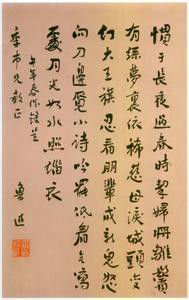 慣于長夜過春時挈婦將雛鬢
有絲夢裏依稀慈母淚城頭變
幻大王旗忍看朋輩成新鬼怒
向刀邊覓小詩吟罷低眉無寫
處月光如水照緇衣
午年春作錄呈
季市兄教正
魯迅